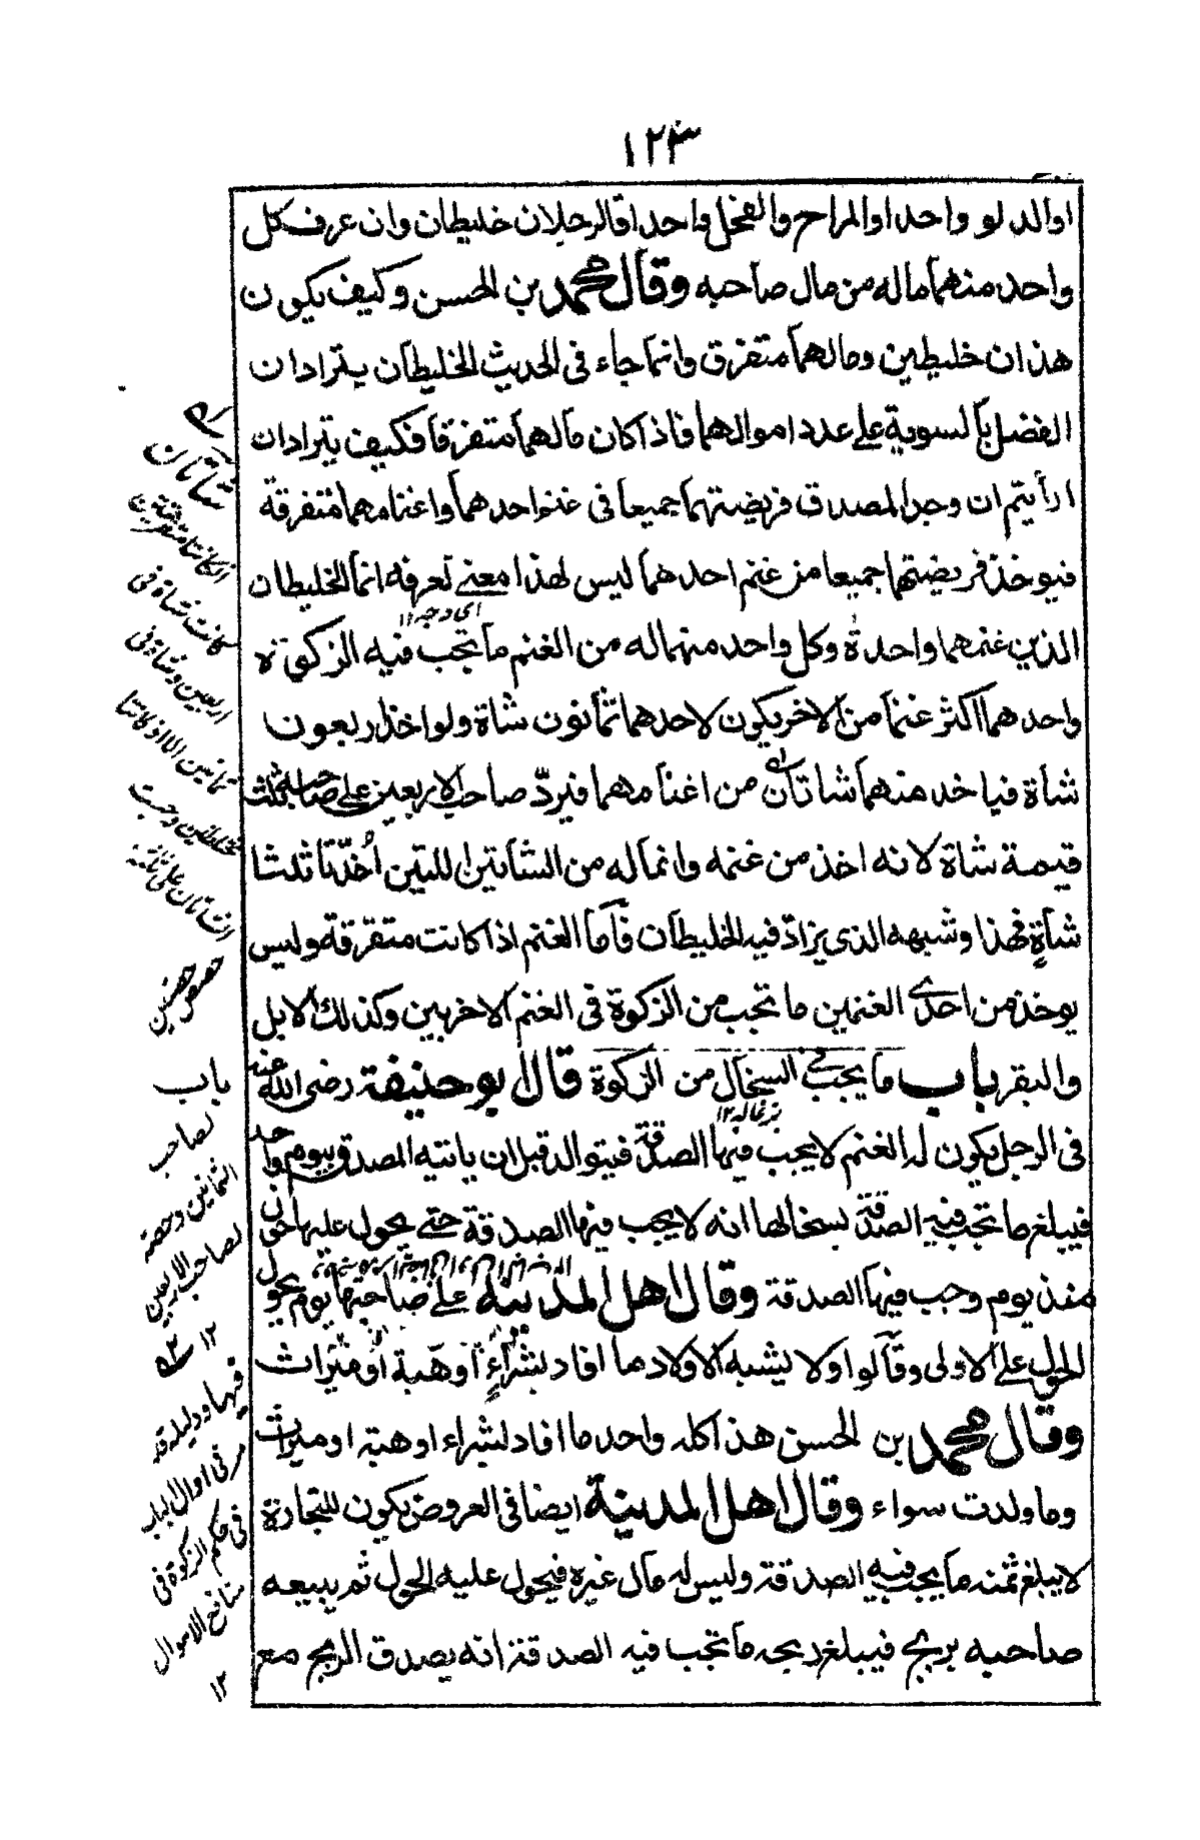 ١٢٣
او الدلو واحدا والمراح والفحل واحدا قال الرجلان خليطان وان عرف كل
واحد منهما ماله من مال صاحبه وقال محمد بن الحسن وكيف يكون
هذان خليطين ومالهما متفرق وانما جاء فى الحديث الخليطان يترادان
الفضل بالسوية على عدد اموالهما فاذا كان مالهما متفرقا فكيف يترادان
ارأيتم ان وجد المصدق فريضتهما جميعا فى غنم احدهما واغنامهما متفرقة
فيوخذ فريضتهما جميعا من غنم احدهما ليس لهذا معنى نعرفه انما الخليطان
اى وجه ١٢
الذين غنمهما واحدة وكل واحد منهما له من الغنم ما تجب فيه الزكوة
واحدهما اكثر غنما من الاخر يكون لاحدهما ثمانون شاة ولواخذ اربعون
شاة فياخذ منهما شاتان من اغنامهما فيردّ صاحب الاربعين على صاحبه ثلث
قيمة شاة لانه اخذ من غنمه وانما له من الشاتين اللتين اُخذتا ثلثا
شاةٍ فهذا وشبهه الذى يرادّ فيه الخليطان فأما الغنم اذا كانت متفرقة وليس
يوخذ من احدى الغنمين ما تجب من الزكوة فى الغنم الاخريين وكذلك الابل
والبقر باب ما يجب فى السخال من الزكوة قال ابو حنيفة رضى الله عنه
بزغاله ١٢
فى الرجل يكون له الغنم لا يجب فيها الصدقة فيتوالد قبل ان ياتيه المصدق بيوم واحد
فيبلغ ما تجب فيه الصدقة بسخالها انه لا يجب فيها الصدقة حتى يحول عليها الحول
منذ يوم وجب فيها الصدقة وقال اهل المدينة على صاحبها يوم يحول
الحول على الاولى وقالوا ولا يشبه الاولاد ما افاد بشراءٍ أو هبة أو ميراث
وقال محمد بن الحسن هذا كله واحد ما افاد بشراء او هبة او ميراث
وما ولدت سواء وقال اهل المدينة ايضا فى العروض يكون للتجارة
لا يبلغ ثمنه ما يجب فيه الصدقة وليس له مال غيره فيحول عليه الحول ثم يبيعه
صاحبه بربح فيبلغ ربحه ما تجب فيه الصدقة انه يصدق الربح مع
شاتان
كانت شاة فى
اربعين وشاة فى
ثمانين الا اذ كانتا
مختلطين وجبت
حصص حصتين
باب
لصاحب
الثمانين وحصة
لصاحب الاربعين
١٢
فيها ودليله قد
مر فى اوائل الباب
فى حكم الزكوة فى
منافع الاموال
١٢